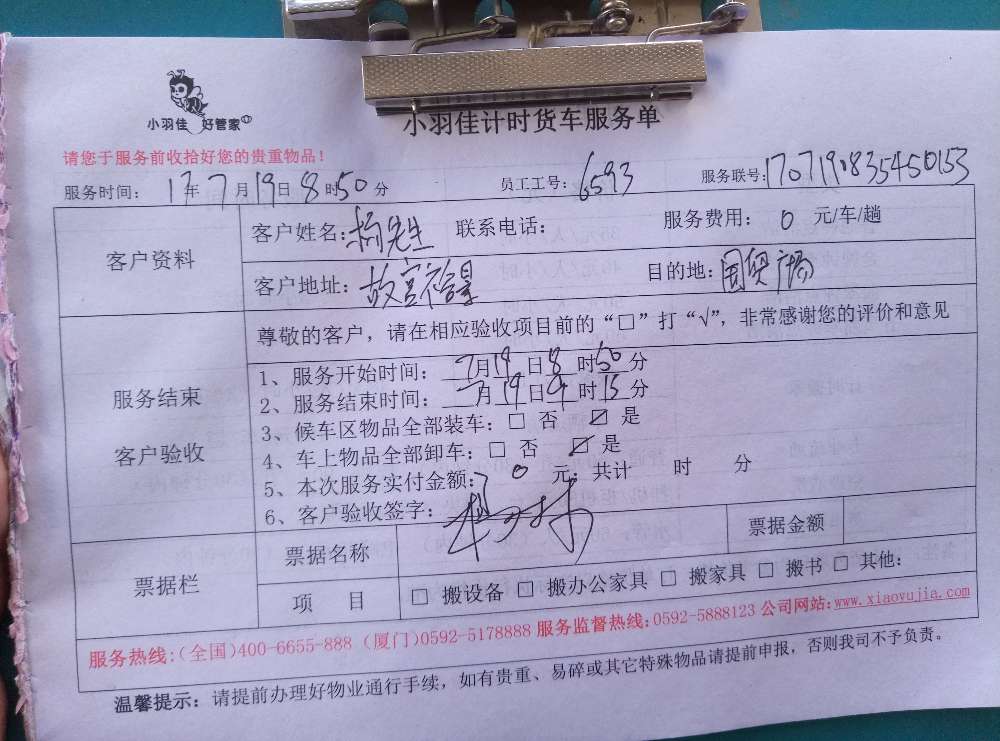 小羽佳 好管家
小羽佳计时货车服务单
请您于服务前收拾好您的贵重物品！
服务时间： 17年7月19日8时50分 员工工号：6593 服务联号：170719083545 0153
客户资料
客户姓名：杨先生 联系电话： 服务费用： 0 元/车/趟
客户地址：故宫裕景 目的地：国贸广场
服务结束
客户验收
尊敬的客户，请在相应验收项目前的“□”打“√”，非常感谢您的评价和意见
1、服务开始时间： 7月19日8时50分
2、服务结束时间： 7月19日9时15分
3、候车区物品全部装车：□ 否 ☑ 是
4、车上物品全部卸车：□ 否 ☑ 是
5、本次服务实付金额： 0 元；共计 时 分
6、客户验收签字：
票据栏
票据名称 票据金额
项 目 □ 搬设备 □ 搬办公家具 □ 搬家具 □ 搬书 □ 其他：
服务热线：(全国)400-6655-888 (厦门)0592-5178888 服务监督热线：0592-5888123 公司网站：www.xiaoyujia.com
温馨提示：请提前办理好物业通行手续，如有贵重、易碎或其它特殊物品请提前申报，否则我司不予负责。